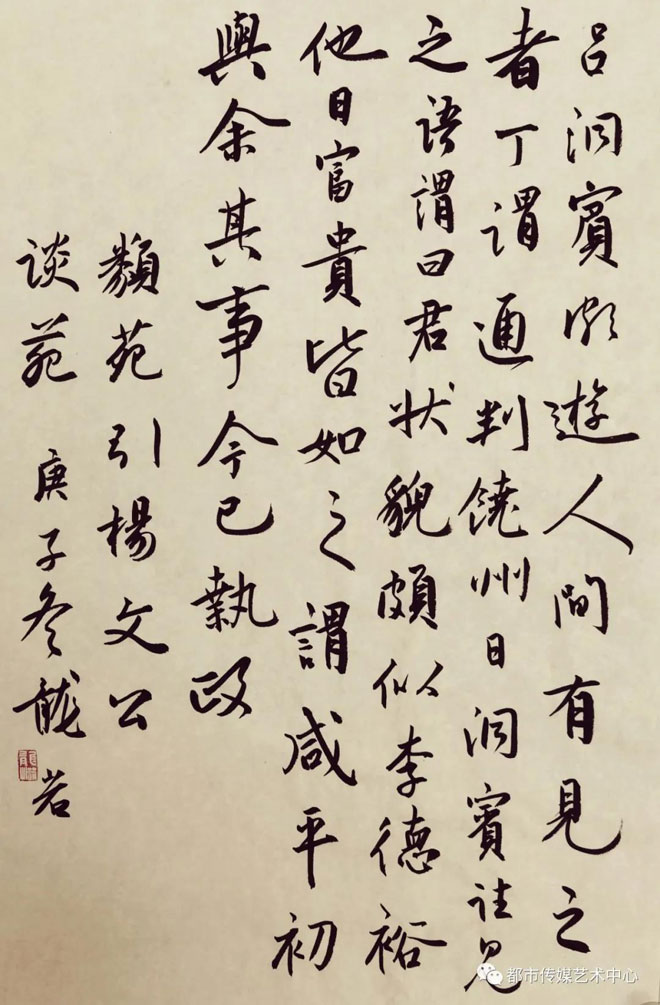 吕洞賓頗遊人間有見之
者丁謂通判饒州日洞賓往見
之語謂曰君状貌頗似李德裕
他日富貴皆如之謂咸平初
與余其事今已執政
類苑引楊文公
談苑 庚子冬龍若
都市传媒艺术中心